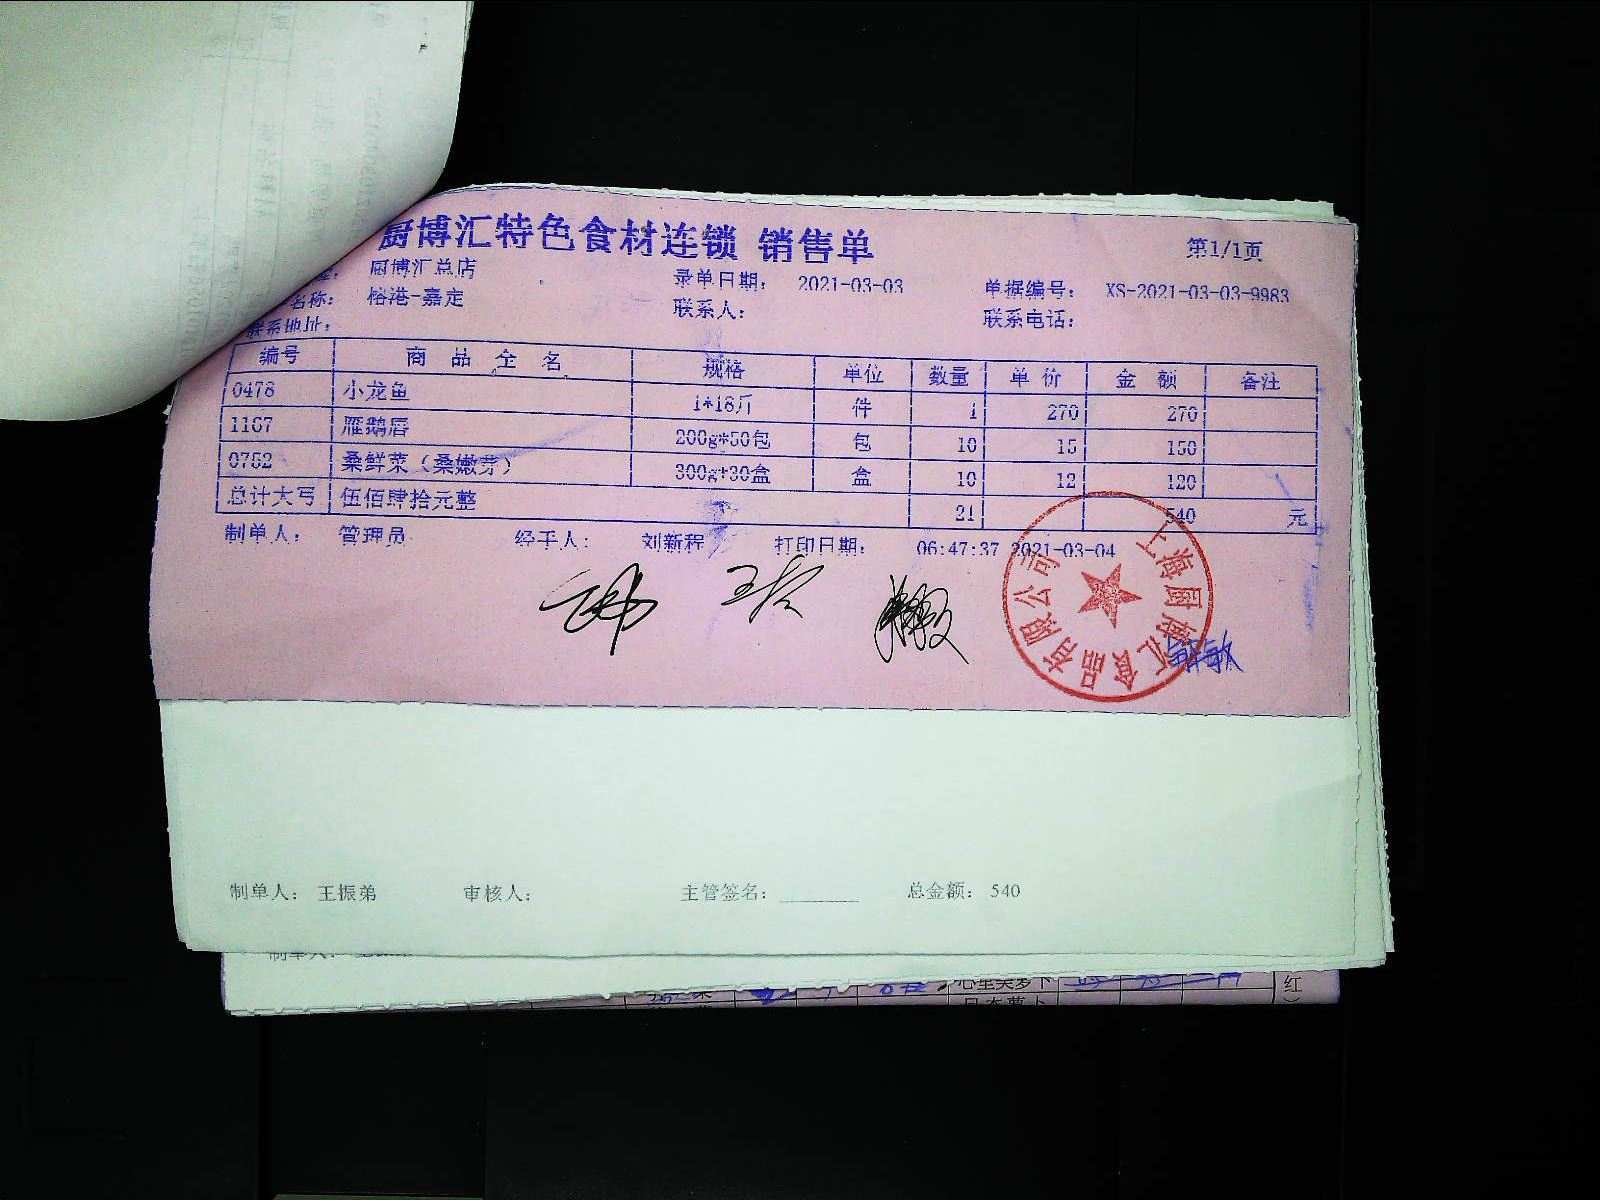 厨博汇特色食材连锁 销售单 第1/1页
厨博汇总店 录单日期： 2021-03-03 单据编号： XS-2021-03-03-9983
名称： 榕港-嘉定 联系人： 联系电话：
联系地址：
编号 商品全名 规格 单位 数量 单价 金额 备注
0478 小龙鱼 1*18斤 件 1 270 270
1167 雁鹅唇 200g*50包 包 10 15 150
0752 桑鲜菜（桑嫩芽） 300g*30盒 盒 10 12 120
总计大写 伍佰肆拾元整 21 540 元
制单人： 管理员 经手人： 刘新程 打印日期： 06:47:37 2021-03-04
上海厨博汇食品有限公司
制单人： 王振弟 审核人： 主管签名： ________ 总金额： 540
心里美萝卜
红